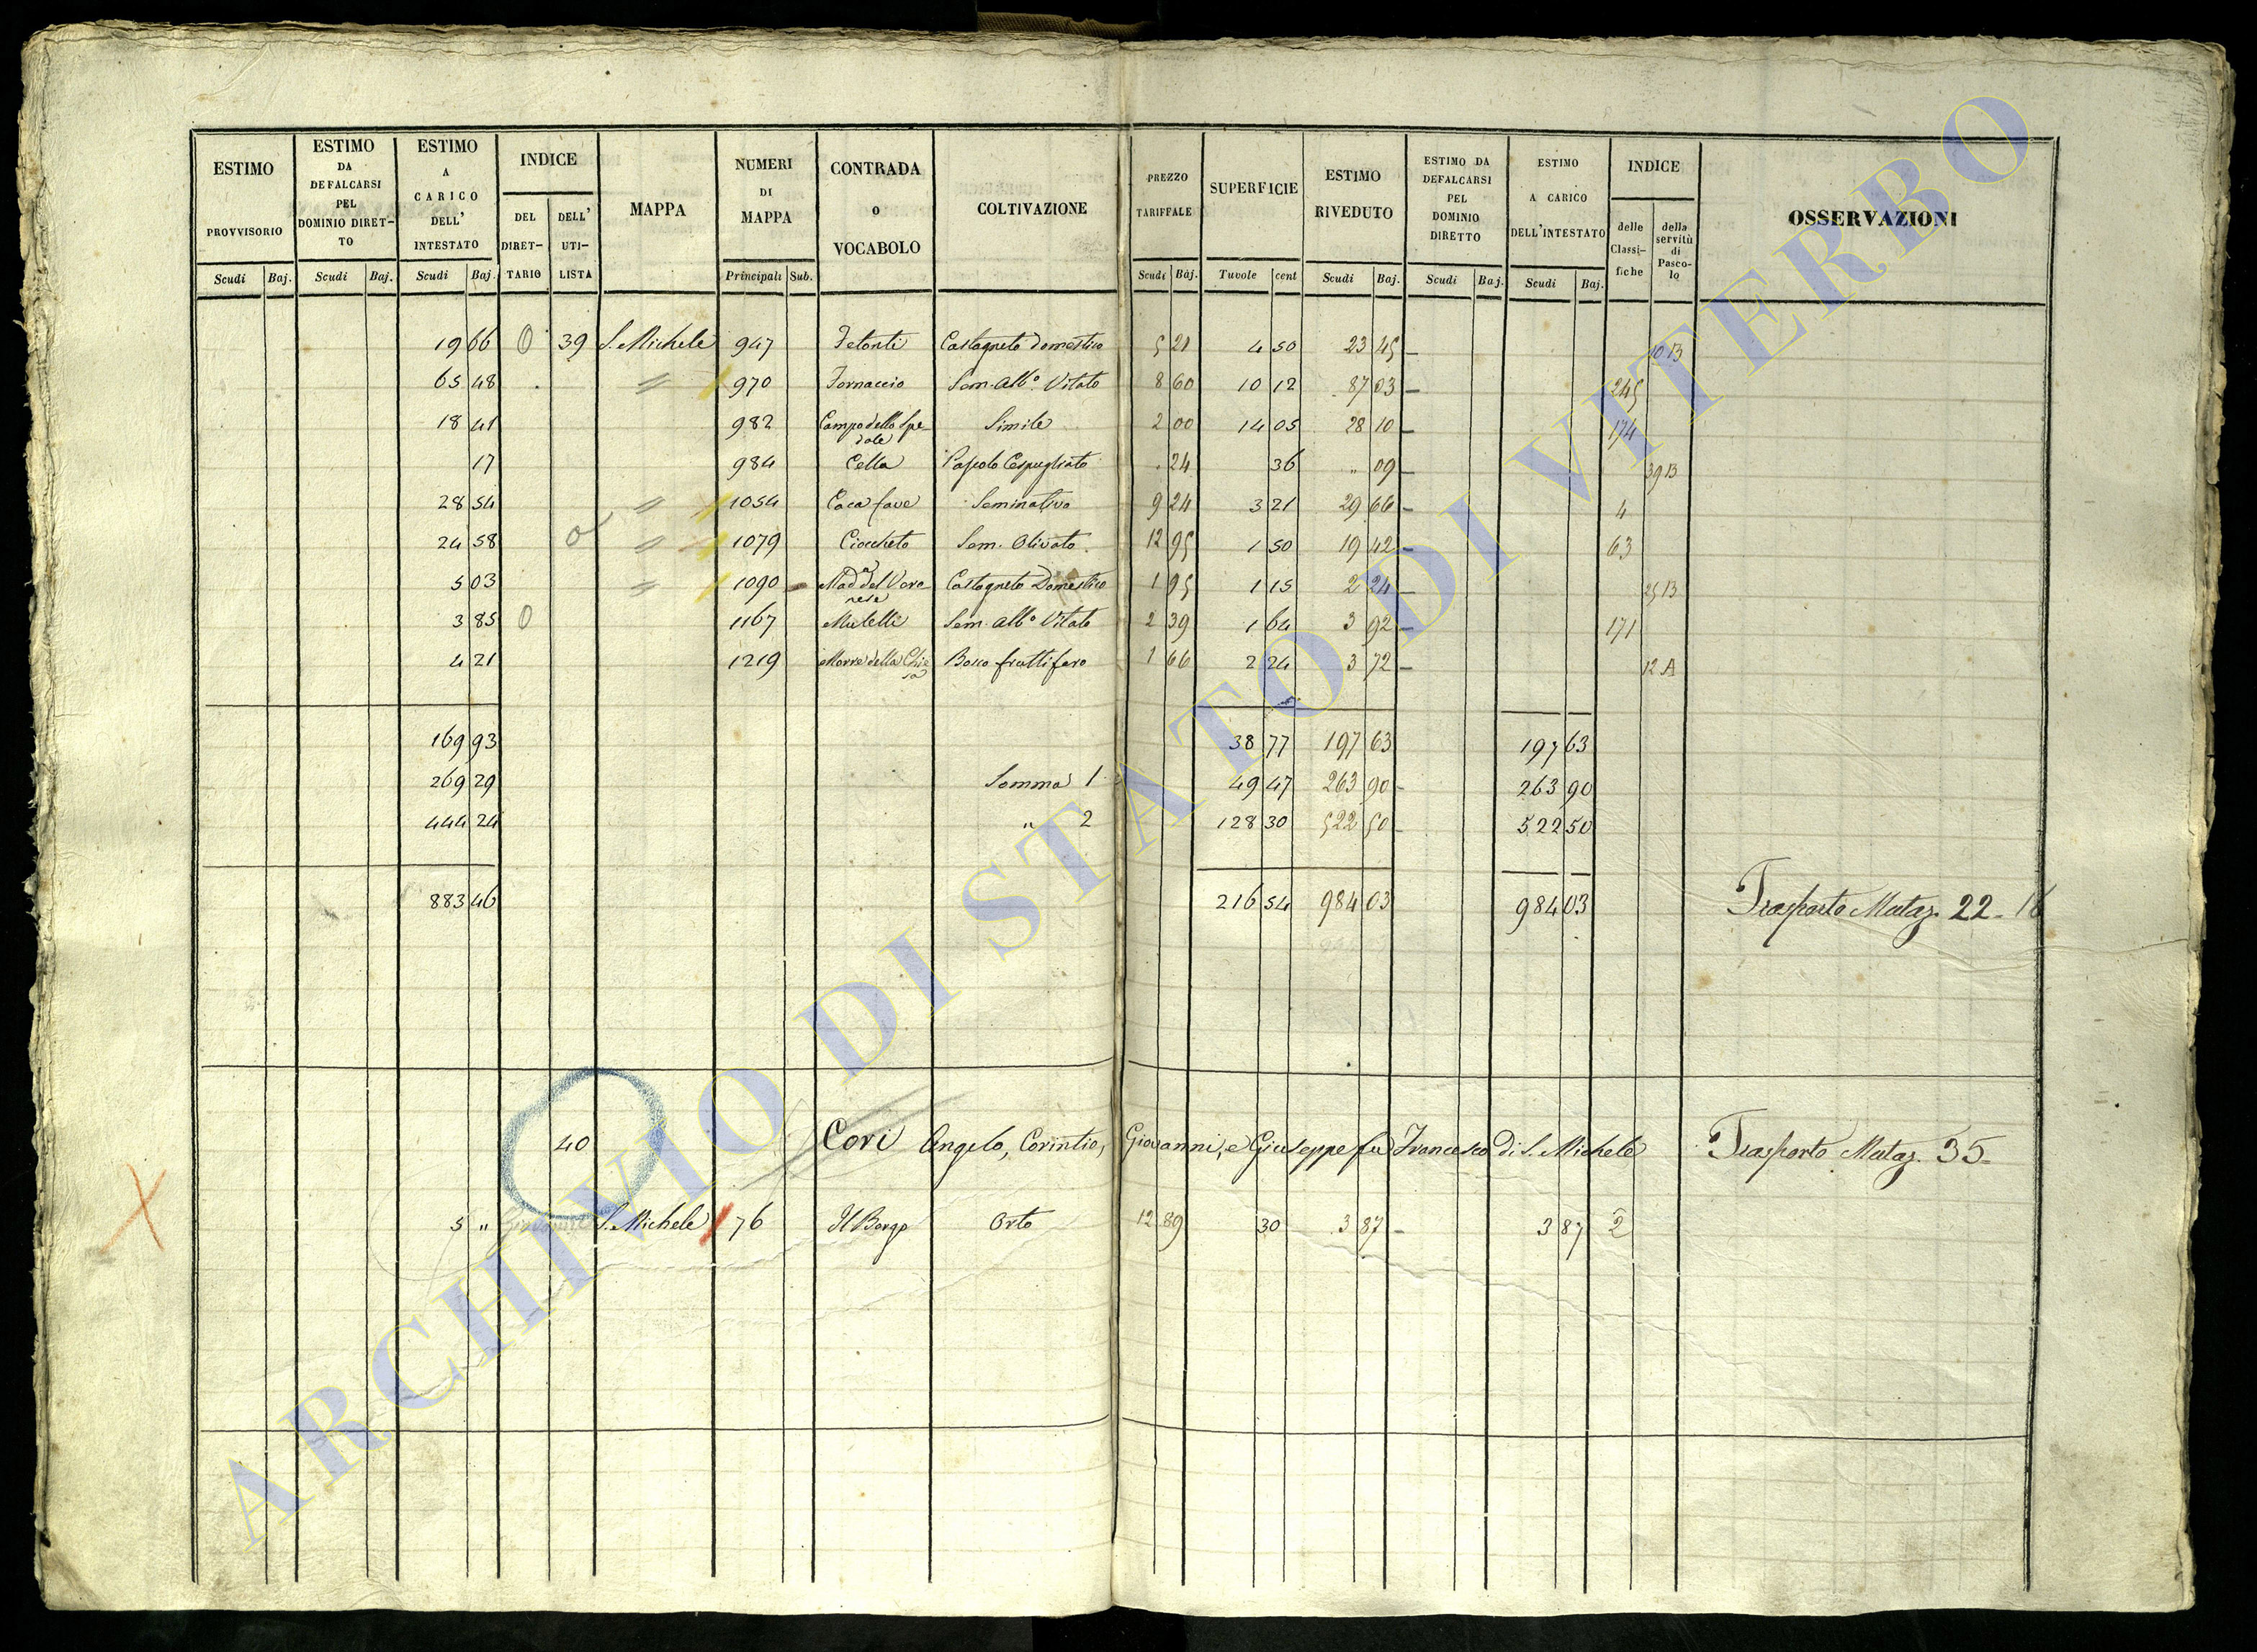 ESTIMO PROVVISORIO
Scudi Baj.
ESTIMO DA DEFALCARSI PEL DOMINIO DIRETTO
Scudi Baj.
ESTIMO A CARICO DELL' INTESTATO
Scudi Baj.
INDICE
DEL DIRETTARIO
DELL' UTILISTA
MAPPA
NUMERI DI MAPPA
Principali Sub.
CONTRADA O VOCABOLO
COLTIVAZIONE
PREZZO TARIFFALE
Scudi Baj.
SUPERFICIE
Tavole cent
ESTIMO RIVEDUTO
Scudi Baj.
ESTIMO DA DEFALCARSI PEL DOMINIO DIRETTO
Scudi Baj.
ESTIMO A CARICO DELL'INTESTATO
Scudi Baj.
INDICE
delle Classifiche
della servitù di Pascolo
OSSERVAZIONI
19 66 0 39 S. Michele 947 Castagneto Domestico 5 21 4 50 23 45 10 B
65 48 970 Fornaccio Sem. Alb.o Vitato 8 60 10 12 87 03 245
18 41 982 Campo dello Spedale Simile 2 00 14 05 28 10 174
17 984 Cella Pascolo Cespugliato 24 36 " 09 39 B
28 54 1054 Caca fave Seminativo 9 24 3 21 29 66 4
24 58 1079 Ciocheto Sem. Olivato 12 95 1 50 19 42 63
5 03 1090 Castagneto Domestico 1 95 1 15 2 24 25 B
3 85 0 1167 Sem. Alb.o Vitato 2 39 1 64 3 92 171
4 21 1219 Morre della Chiesa Bosco fruttifero 1 66 2 24 3 72 12 A
169 93 38 77 197 63 197 63
269 29 Somma 1 49 47 263 90 263 90
444 24 " 2 128 30 522 50 522 50
883 46 216 54 984 03 984 03 Trasporto Mataz. 22 - 16
40 Cori Angelo, Corintio, Giovanni, e Giuseppe fu Francesco di S. Michele Trasporto Mataz. 35
5 " S. Michele 76 Il Borgo Orto 12 89 30 3 87 3 87 2
ARCHIVIO DI STATO DI VITERBO